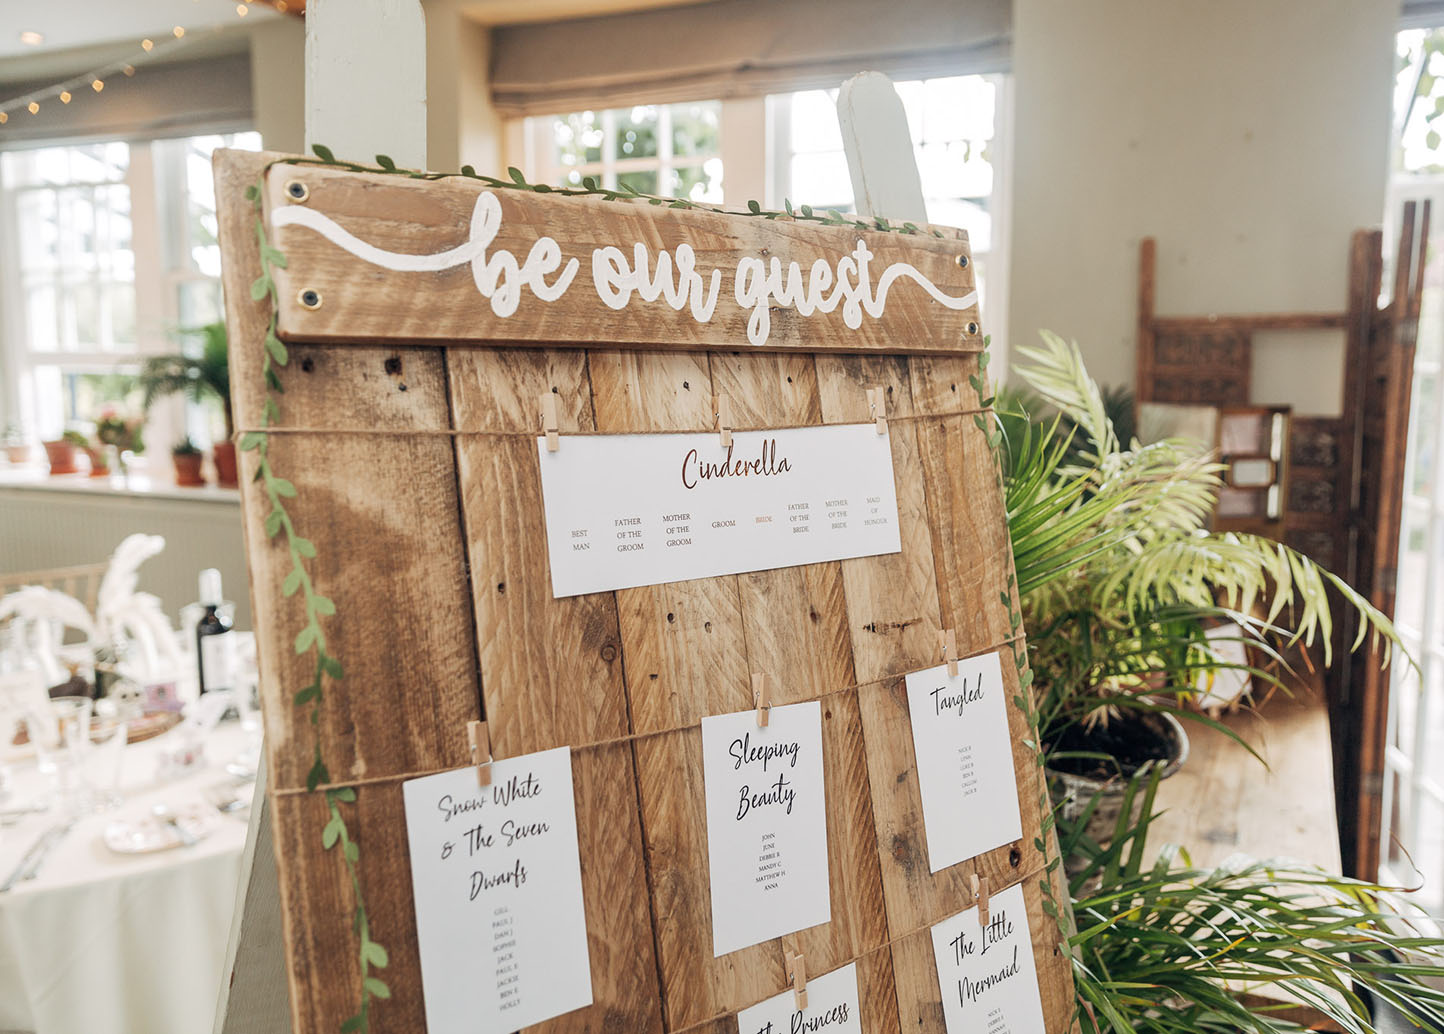 be our guest
Cinderella
BEST MAN
FATHER OF THE GROOM
MOTHER OF THE GROOM
GROOM
BRIDE
FATHER OF THE BRIDE
MOTHER OF THE BRIDE
MAID OF HONOUR
Snow White
& The Seven
Dwarfs
GILL
PAUL J
DAN J
SOPHIE
JACK
PAUL E
JACKIE
BEN E
HOLLY
Sleeping
Beauty
JOHN
JUNE
DEBBIE R
MANDY C
MATTHEW H
ANNA
Tangled
NICK B
LYNN
LUKE B
BEN B
CALLUM
JACK B
The Little
Mermaid
The Princess